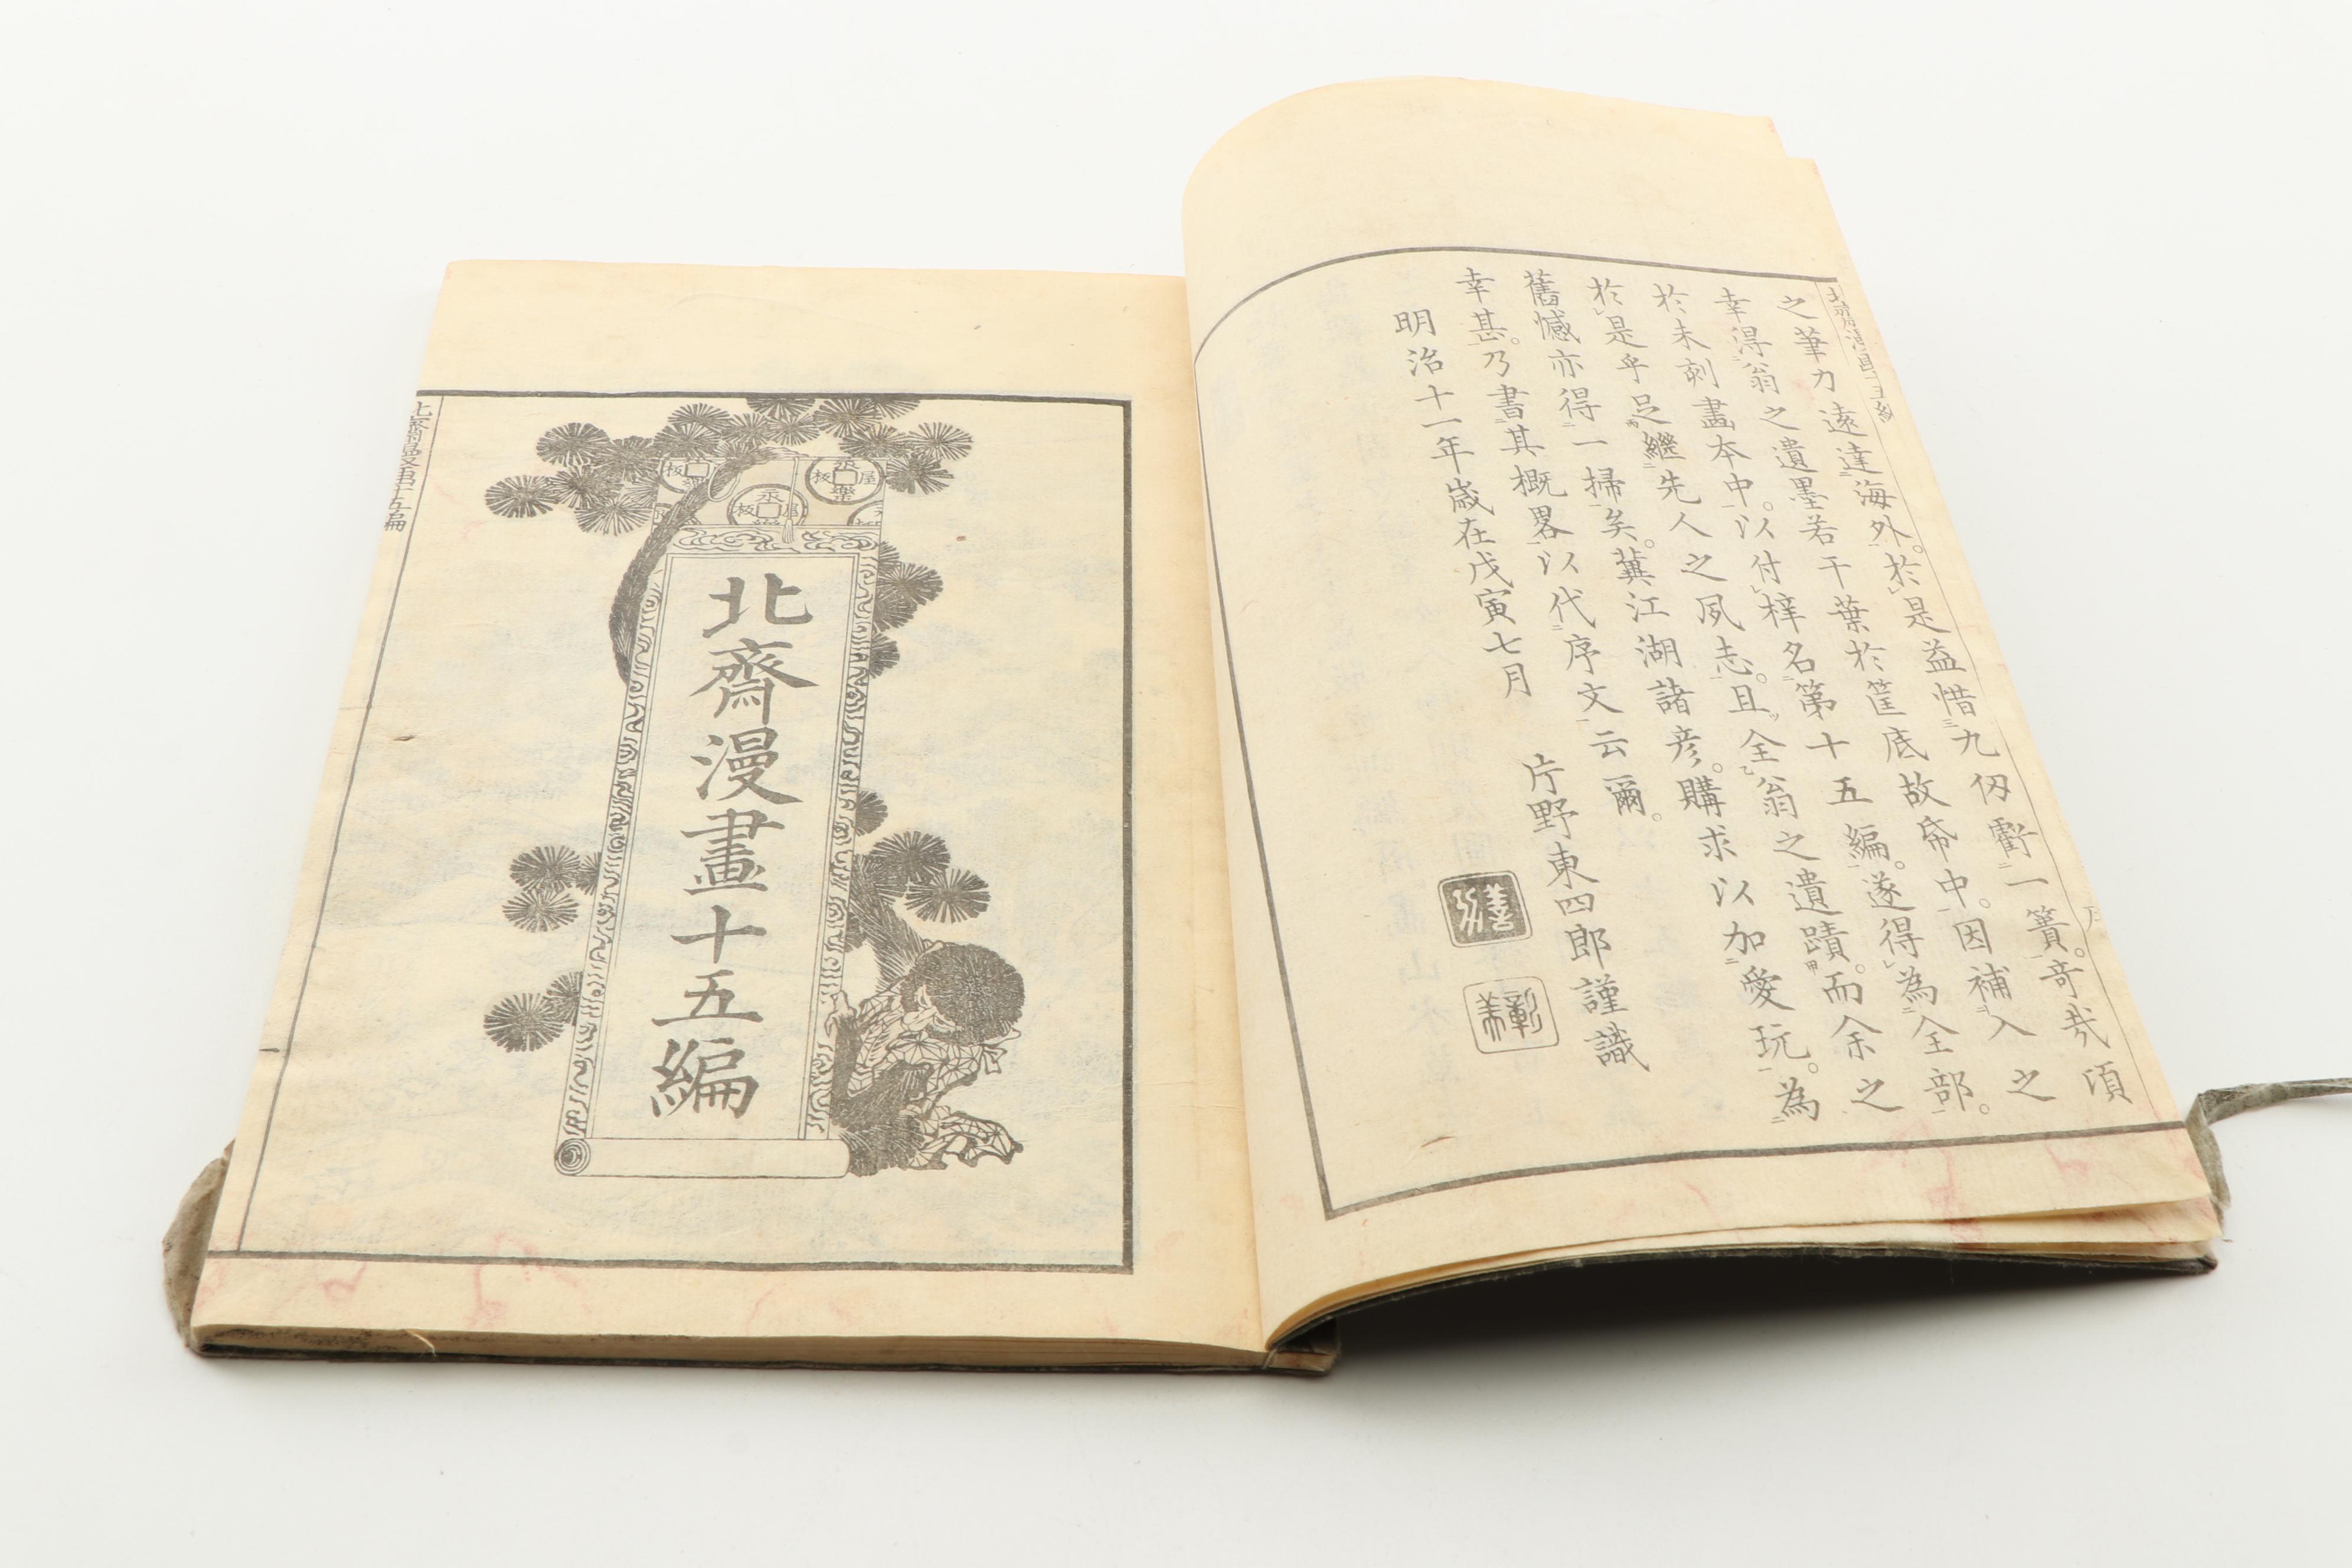 之筆力遠達海外。於是益惜九仞虧一簣。奇哉項
幸得翁之遺墨若干葉於筐底故帋中。因補入之
於未刻畫本中。以付梓名第十五編。遂得為全部。
於是乎足継先人之夙志。且全翁之遺蹟。而余之
舊憾亦得一掃矣。冀江湖諸彦。購求以加愛玩。為
幸甚。乃書其概畧以代序文云爾。
明治十一年歳在戊寅七月
片野東四郎謹識
北齋漫畫十五編
永樂屋板